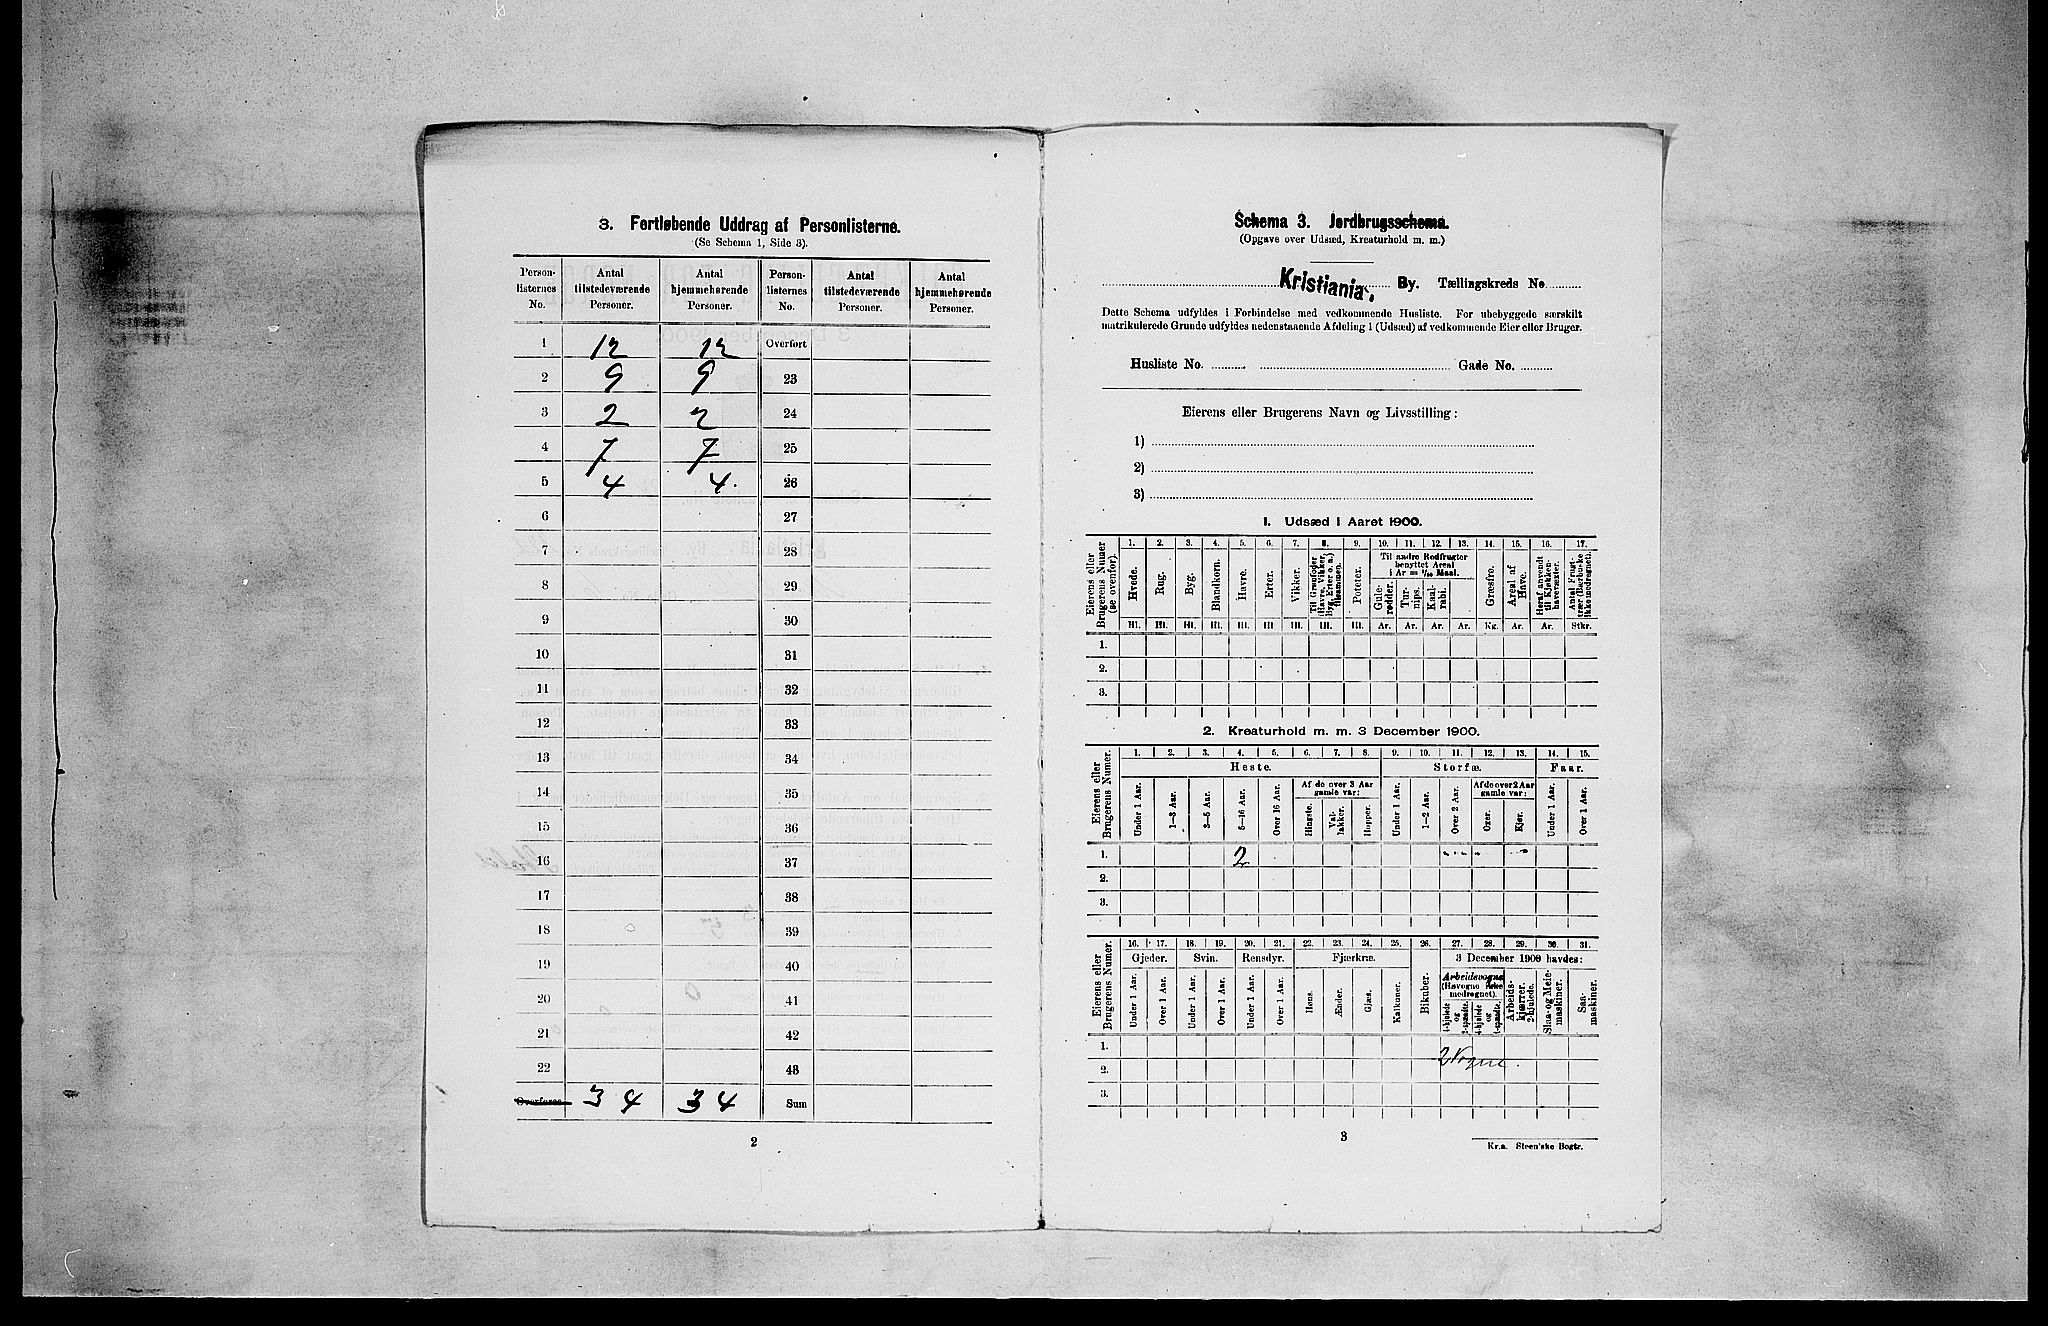 3. Fortløbende Uddrag af Personlisterne.
(Se Schema 1, Side 3).
Person-listernes No. | Antal tilstedeværende Personer. | Antal hjemmehørende Personer. | Person-listernes No. | Antal tilstedeværende Personer. | Antal hjemmehørende Personer.
1 12 12 Overført
2 9 9 23
3 2 2 24
4 7 7 25
5 4 4. 26
6 27
7 28
8 29
9 30
10 31
11 32
12 33
13 34
14 35
15 36
16 37
17 38
18 39
19 40
20 41
21 42
22 43
Overføres 34 34 Sum
2
Schema 3. Jordbrugsschema.
(Opgave over Udsæd, Kreaturhold m. m.)
Kristiania, By. Tællingskreds No
Dette Schema udfyldes i Forbindelse med vedkommende Husliste. For ubebyggede særskilt
matrikulerede Grunde udfyldes nedenstaaende Afdeling 1 (Udsæd) af vedkommende Eier eller Bruger.
Husliste No. Gade No.
Eierens eller Brugerens Navn og Livsstilling:
1)
2)
3)
1. Udsæd i Aaret 1900.
Eierens eller Brugerens Numer (se ovenfor).
1. 2. 3. 4. 5. 6. 7. 8. 9. 10. 11. 12. 13. 14. 15. 16. 17.
Til andre Rodfrugter benyttet Areal i Ar = 1/10 Maal.
Hvede. Rug. Byg. Blandkorn. Havre. Erter. Vikker. Til Grønfoder (Havre, Vikker, Byg, Erter o. a.) tilsammen. Poteter. Gule-rødder. Tur-nips. Kaal-rabi. Græsfrø. Areal af Have. Heraf anvendt til Kjøkken-havevæxter. Antal Frugt-trær (Bærbuske ikke medregnet).
Hl. Hl. Hl. Hl. Hl. Hl. Hl. Hl. Hl. Ar. Ar. Ar. Ar. Kg. Ar. Ar. Stkr.
1.
2.
3.
2. Kreaturhold m. m. 3 December 1900.
Eierens eller Brugerens Numer.
1. 2. 3. 4. 5. 6. 7. 8. 9. 10. 11. 12. 13. 14. 15.
Heste. Storfæ. Faar.
Af de over 3 Aar gamle var: Af de over 2 Aar gamle var:
Under 1 Aar. 1—3 Aar. 3—5 Aar. 5—16 Aar. Over 16 Aar. Hingste. Val-lakker. Hopper. Under 1 Aar. 1—2 Aar. Over 2 Aar. Oxer. Kjør. Under 1 Aar. Over 1 Aar.
1. 2
2.
3.
Eierens eller Brugerens Numer.
16. 17. 18. 19. 20. 21. 22. 23. 24. 25. 26. 27. 28. 29. 30. 31.
Gjeder. Svin. Rensdyr. Fjærkræ. 3 December 1900 havdes:
Under 1 Aar. Over 1 Aar. Under 1 Aar. Over 1 Aar. Under 1 Aar. Over 1 Aar. Høns. Ænder. Gjæs. Kalkuner. Bikuber. Arbeidsvogne (Høvogne ikke medregnet). 4-hjulede og 2-spændte. 4-hjulede og 1-spændte. Arbeids-kjærrer, 2-hjulede. Slaa- og Meie-maskiner. Saa-maskiner.
1. 2 Vogne
2.
3.
3
Kr.a. Steen'ske Bogtr.